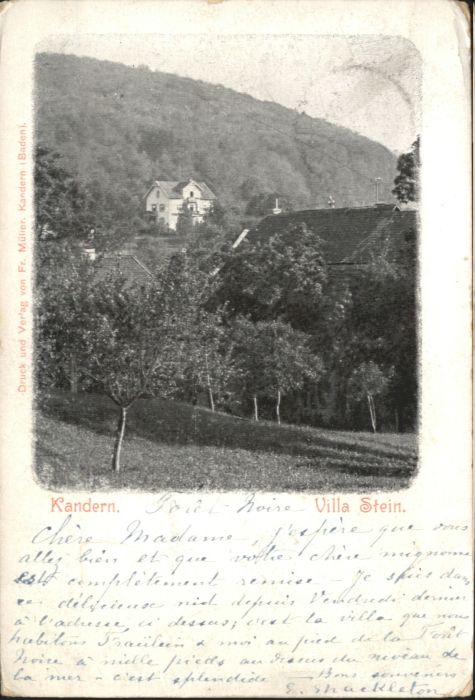 Druck und Verlag von Fr. Müller, Kandern (Baden).
Kandern. Forêt Noire Villa Stein.
Chère Madame, j'espère que vous
allez bien et que votre chère mignonne
est complètement remise - Je suis dans
ce délicieux nid depuis Vendredi dernier
à l'adresse, ci dessus; c'est la villa que nous
habitons Fraülein & moi au pied de la Forêt
Noire à mille pieds au dessus du niveau de
la mer - c'est splendide Bons souvenirs
E. Muckleton